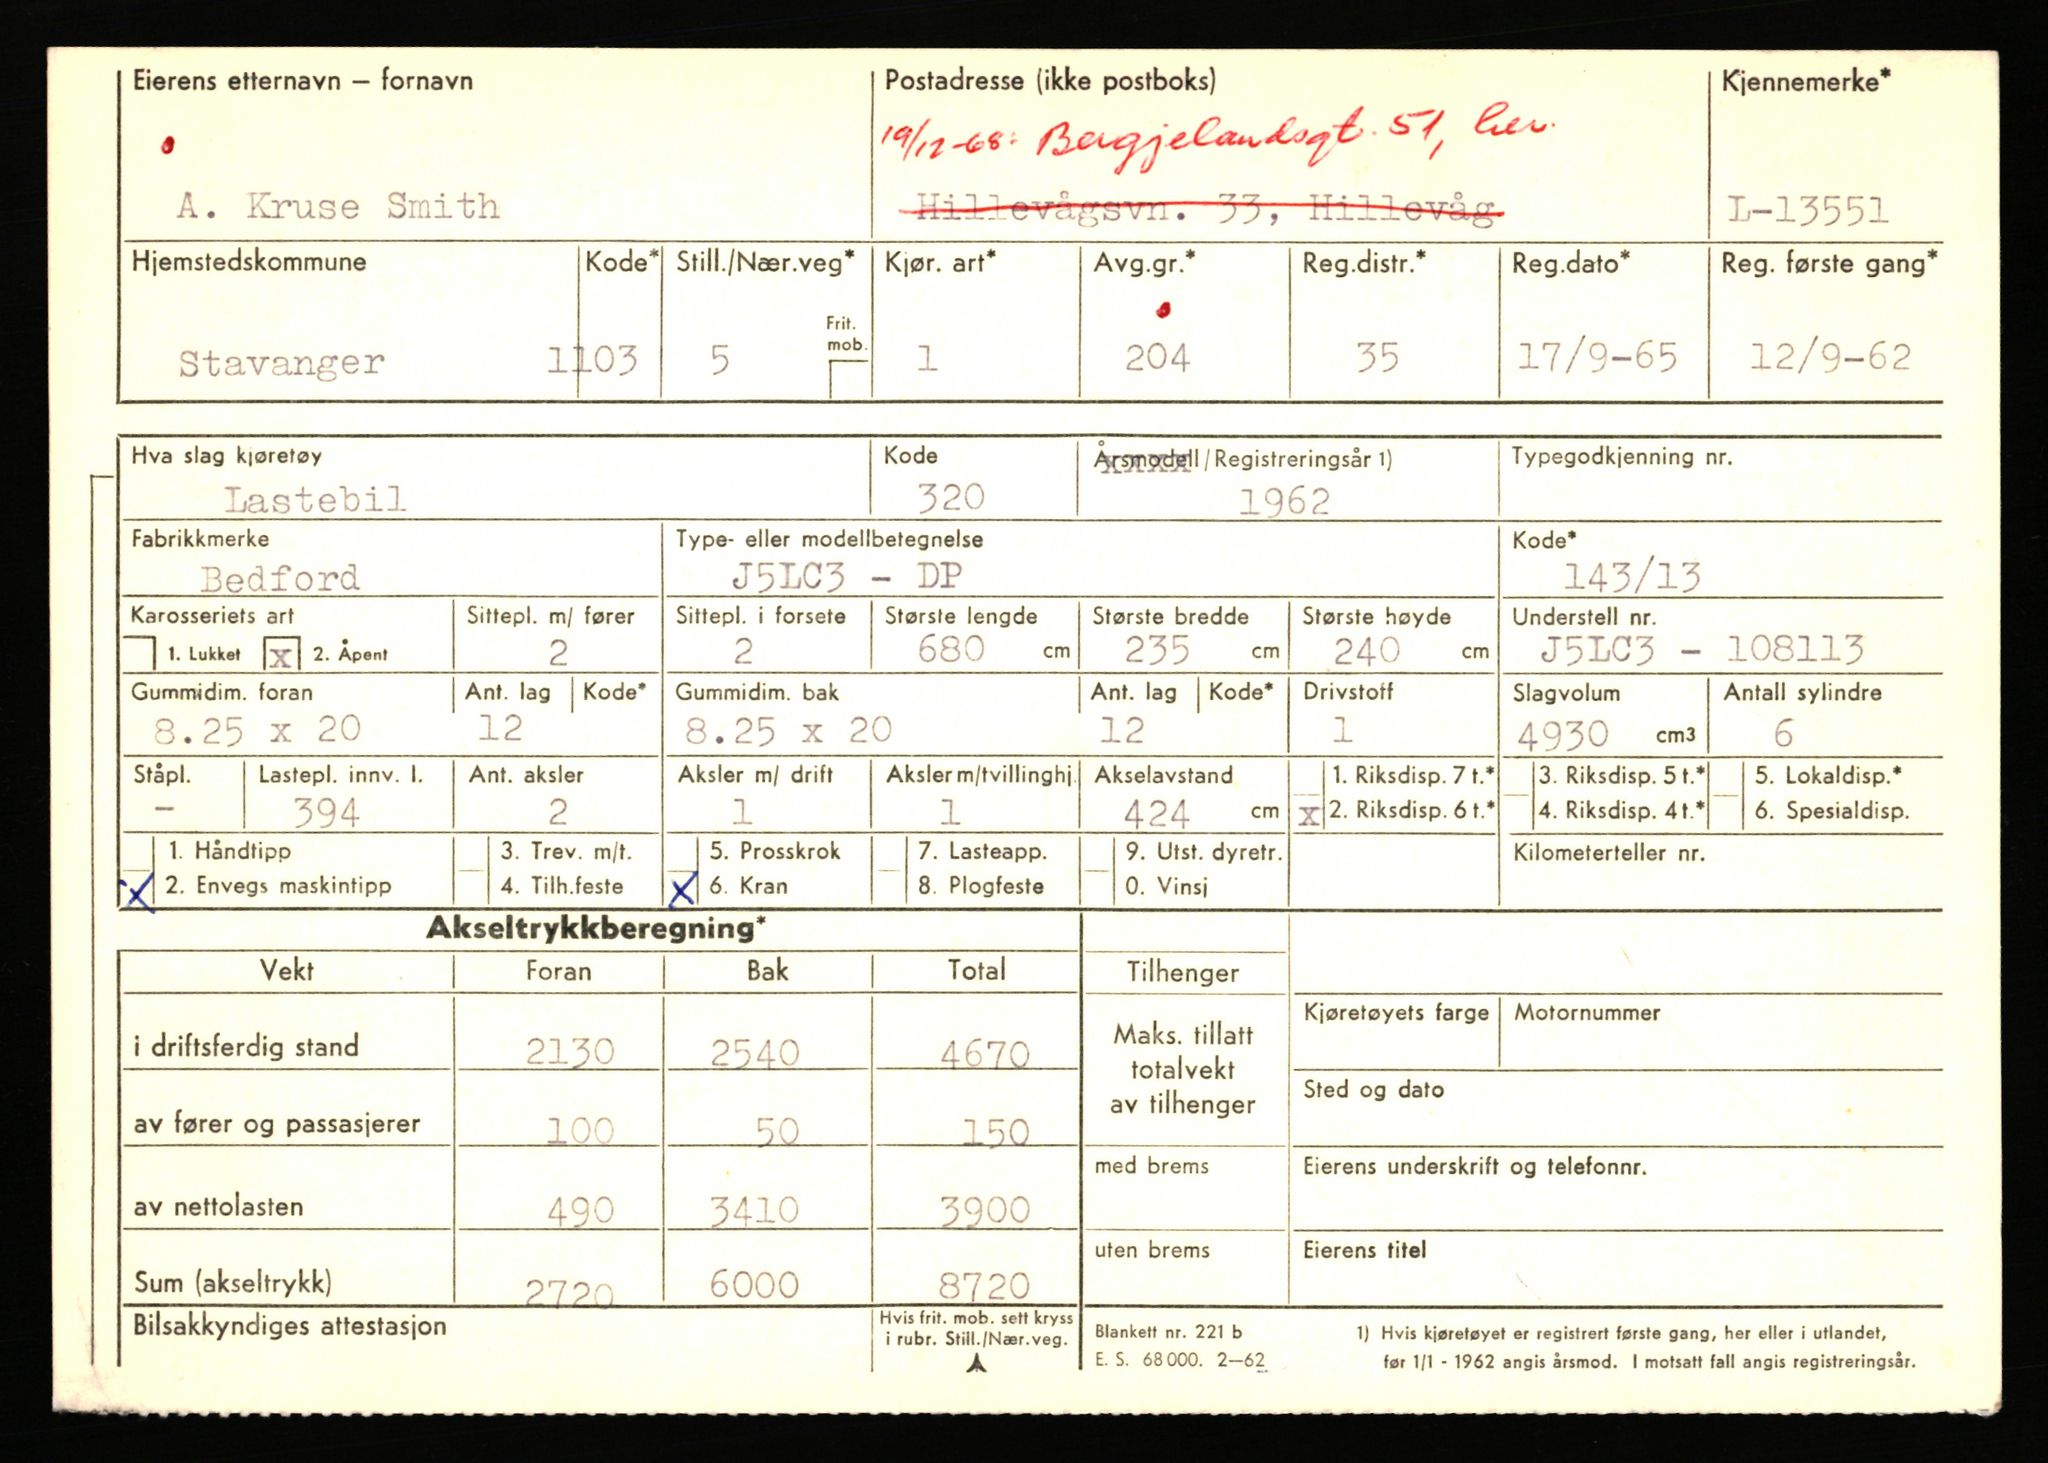 Eierens etternavn – fornavn Postadresse (ikke postboks) Kjennemerke*
19/12-68: Bergjelandsgt. 51, her.
A. Kruse Smith Hillevågsvn. 33, Hillevåg L-13551
Hjemstedskommune Kode* Still./Nær.veg* Kjør. art* Avg.gr.* Reg.distr.* Reg.dato* Reg. første gang*
Frit. mob.
Stavanger 1103 5 1 204 35 17/9-65 12/9-62
Hva slag kjøretøy Kode Årsmodell/Registreringsår 1) Typegodkjenning nr.
Lastebil 320 1962
Fabrikkmerke Type- eller modellbetegnelse Kode*
Bedford J5LC3 - DP 143/13
Karosseriets art Sittepl. m/ fører Sittepl. i forsete Største lengde Største bredde Største høyde Understell nr.
1. Lukket x 2. Åpent 2 2 680 cm 235 cm 240 cm J5LC3 - 108113
Gummidim. foran Ant. lag Kode* Gummidim. bak Ant. lag Kode* Drivstoff Slagvolum Antall sylindre
8.25 x 20 12 8.25 x 20 12 1 4930 cm3 6
Ståpl. Lastepl. innv. l. Ant. aksler Aksler m/ drift Aksler m/tvillinghj. Akselavstand 1. Riksdisp. 7 t.* 3. Riksdisp. 5 t.* 5. Lokaldisp.*
- 394 2 1 1 424 cm x 2. Riksdisp. 6 t.* 4. Riksdisp. 4 t.* 6. Spesialdisp.
1. Håndtipp 3. Trev. m/t. 5. Prosskrok 7. Lasteapp. 9. Utst. dyretr. Kilometerteller nr.
x 2. Envegs maskintipp 4. Tilh.feste x 6. Kran 8. Plogfeste 0. Vinsj
Akseltrykkberegning*
Vekt Foran Bak Total Tilhenger
Kjøretøyets farge Motornummer
i driftsferdig stand 2130 2540 4670 Maks. tillatt
totalvekt
av tilhenger
Sted og dato
av fører og passasjerer 100 50 150
med brems Eierens underskrift og telefonnr.
av nettolasten 490 3410 3900
uten brems Eierens titel
Sum (akseltrykk) 2720 6000 8720
Bilsakkyndiges attestasjon Hvis frit. mob. sett kryss
i rubr. Still./Nær.veg.
Blankett nr. 221 b 1) Hvis kjøretøyet er registrert første gang, her eller i utlandet,
E. S. 68 000. 2–62 før 1/1 - 1962 angis årsmod. I motsatt fall angis registreringsår.